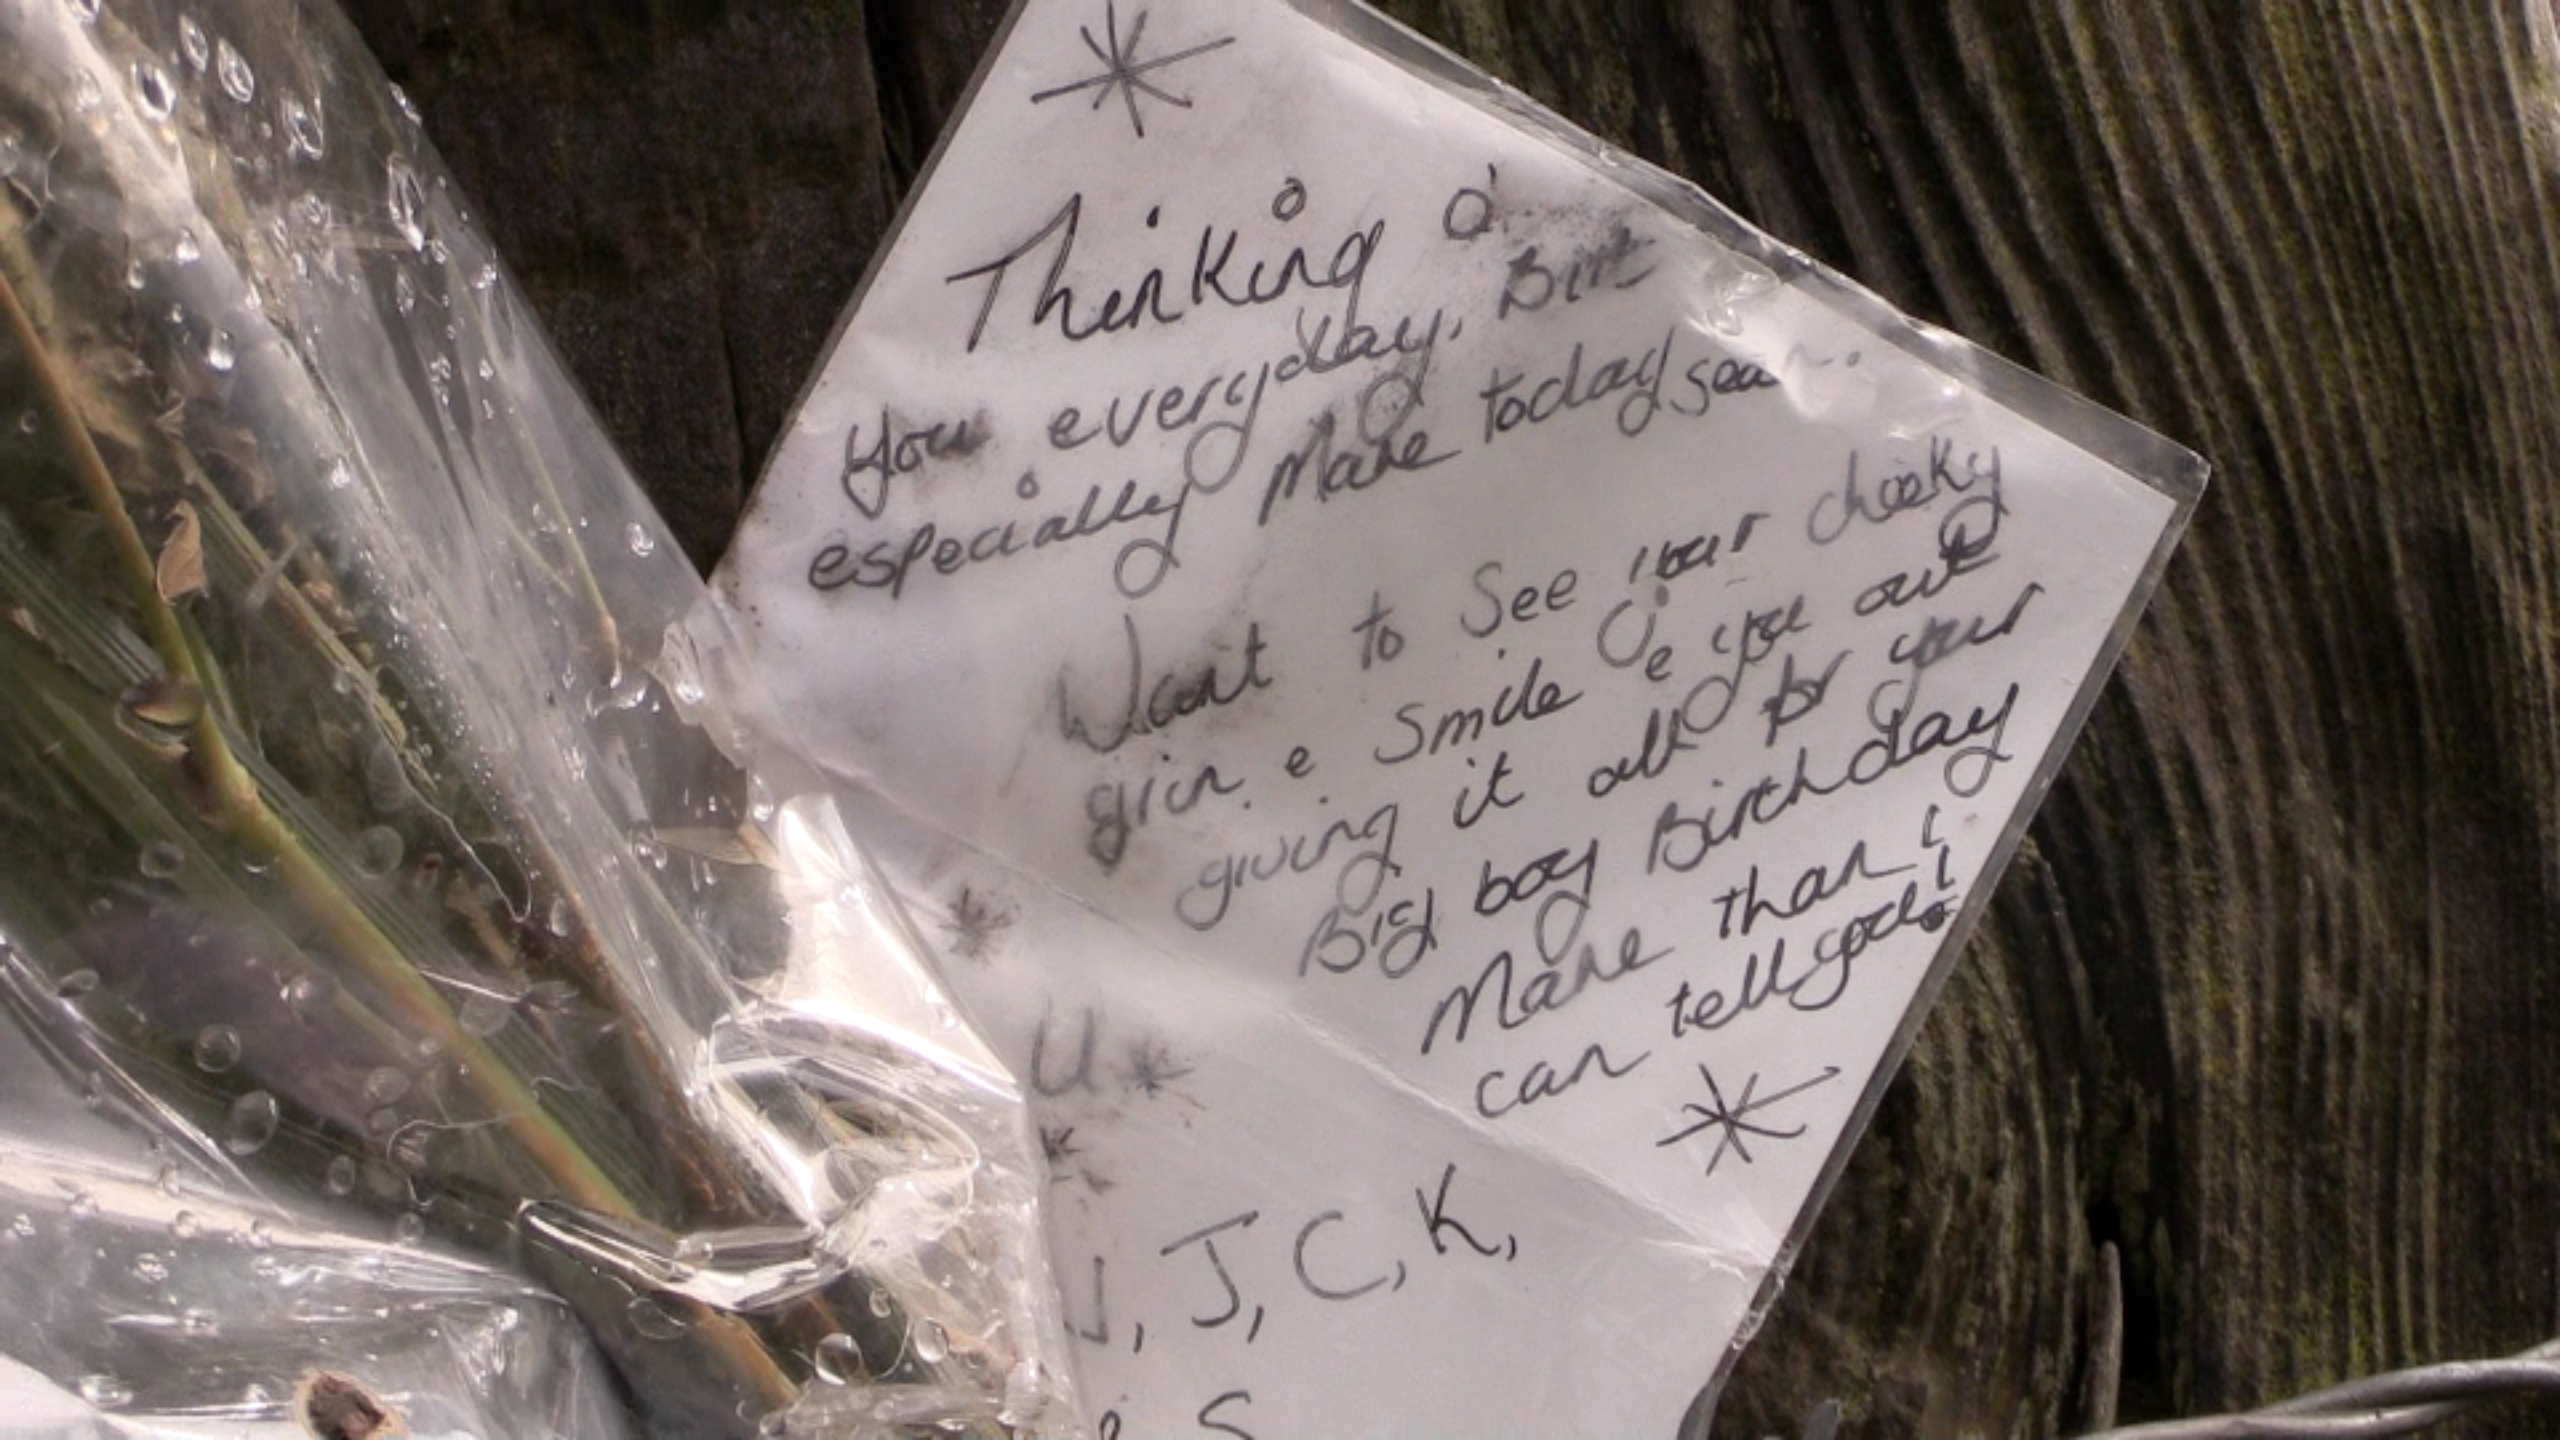 Thinking o
you everyday, But
especially more today
Want to see your cheeky
grin & smile & you out
giving it all for your
Big boy Birthday
More than i
can tell you!
U
J, C, K,
& S